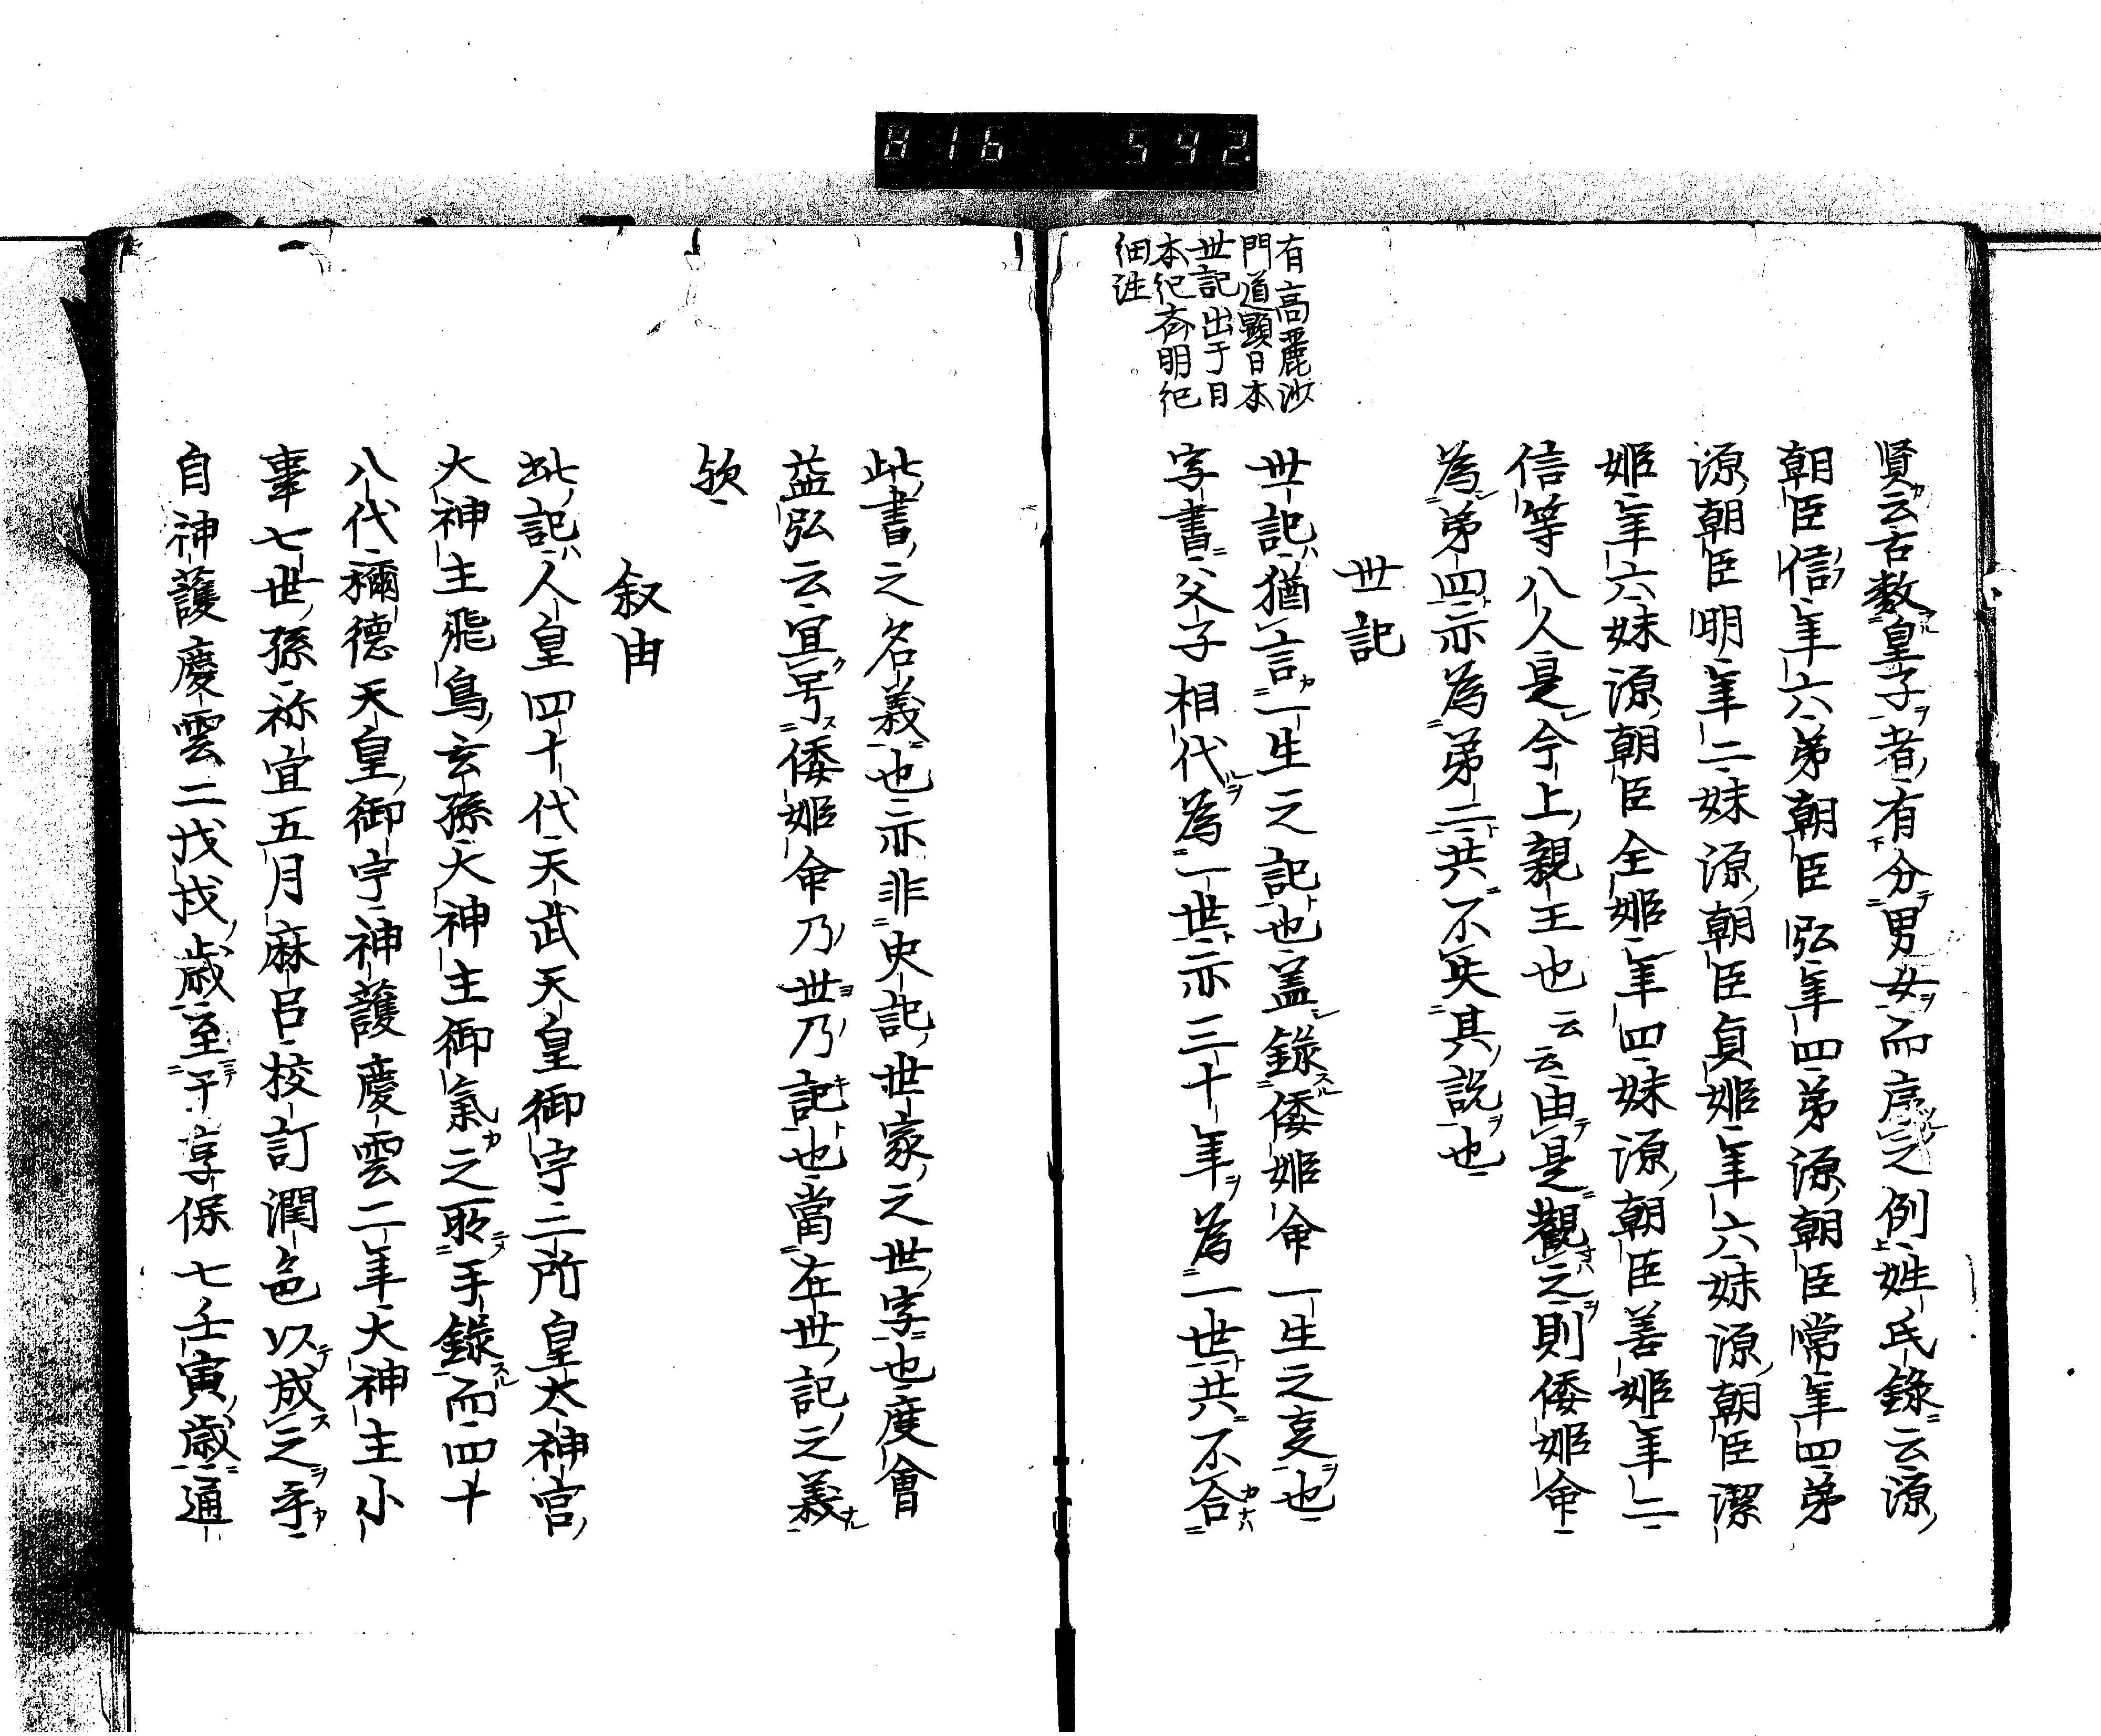 816 592.
有高麗沙
門道顯日本
世記出于日
本紀斉明紀
細注
賢云古数皇子者有分男女而序之例姓氏錄云源
朝臣信年六弟朝臣弘年四弟源朝臣常年四弟
源朝臣明年二妹源朝臣貞姫年六妹源朝臣潔
姫年六妹源朝臣全姫年四妹源朝臣善姫年二
信等八人是今上親王也云云由是觀之則倭姫命
為弟四亦為弟二共不失其説也
世記
世記猶言一生之記也盖錄倭姫命一生之㕝也
字書父子相代為一世亦三十年為一世共不合
此書之名義也亦非史記世家之世字也度會
益弘云宜号倭姫命乃世乃記也當在世記之義
欤
叙由
此記人皇四十代天武天皇御宇二所皇太神宮
大神主飛鳥玄孫大神主御氣之所手錄而四十
八代稱德天皇御宇神護慶雲二年大神主小
事七世孫祢宜五月麻呂校訂潤色以成之乎
自神護慶雲二戊戌歳至于享保七壬寅歳通